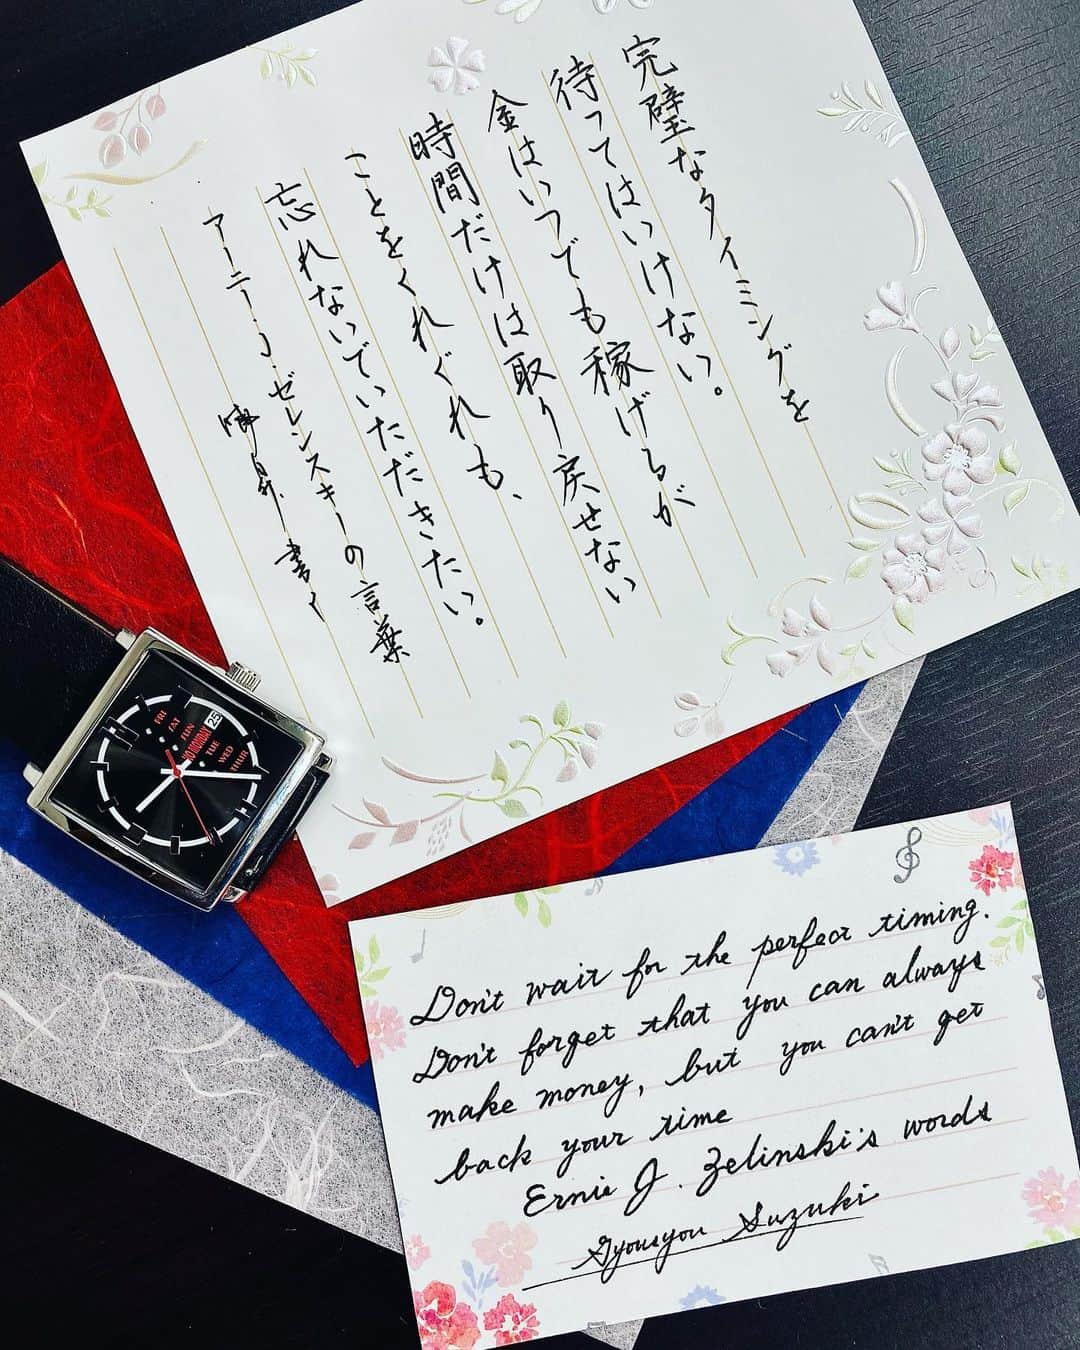 完璧なタイミングを
待ってはいけない。
金はいつでも稼げるが
時間だけは取り戻せない
ことをくれぐれも、
忘れないでいただきたい。
アーニー・J・ゼレンスキーの言葉
書く
FRI
SAT
SUN
NO MONDAY 25
TUE
WED
THUR
Don't wait for the perfect timing.
Don't forget that you can always
make money, but you can't get
back your time
Ernie J. Zelinski's words
Gyousyou Suzuki